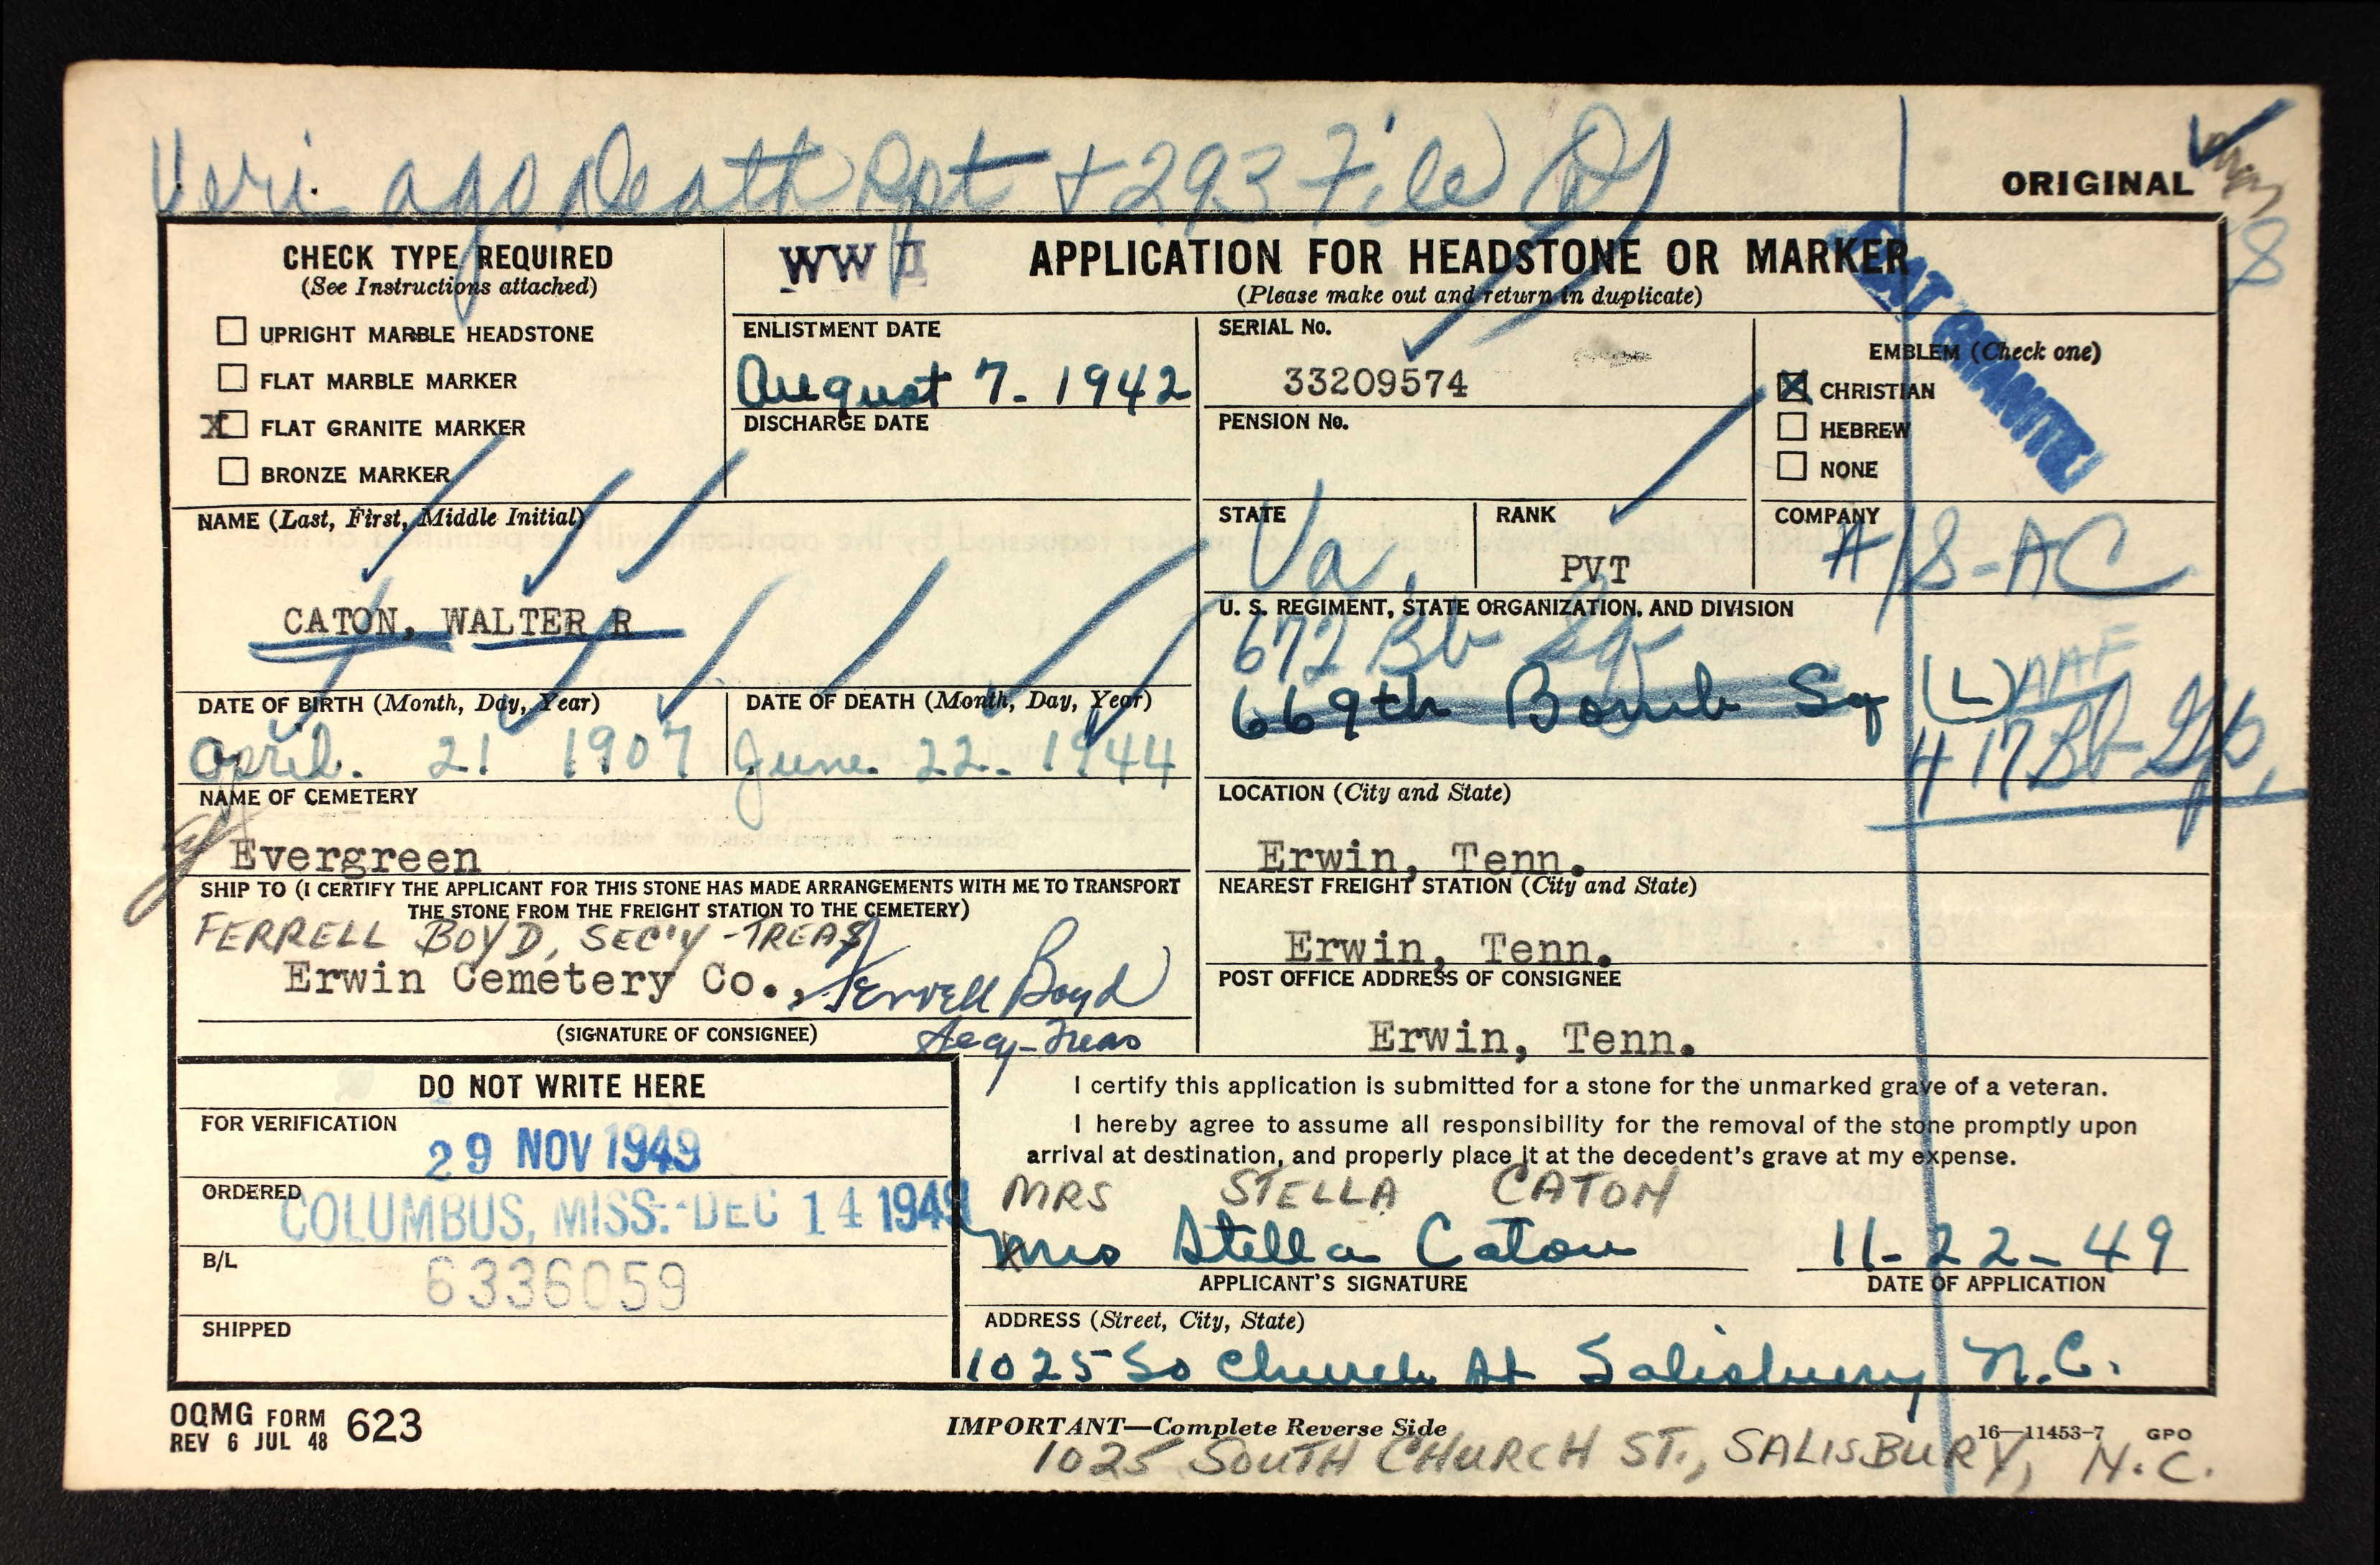 Veri. ago Death Rpt + 293 File
ORIGINAL
8
CHECK TYPE REQUIRED
(See Instructions attached)
UPRIGHT MARBLE HEADSTONE
FLAT MARBLE MARKER
X FLAT GRANITE MARKER
BRONZE MARKER
WW II
APPLICATION FOR HEADSTONE OR MARKER
(Please make out and return in duplicate)
ENLISTMENT DATE
August 7. 1942
DISCHARGE DATE
SERIAL No.
33209574
PENSION No.
EMBLEM (Check one)
X CHRISTIAN
HEBREW
NONE
FLAT GRANITE
NAME (Last, First, Middle Initial)
CATON, WALTER R
STATE
Va.
RANK
PVT
COMPANY
A/S-AC
U. S. REGIMENT, STATE ORGANIZATION, AND DIVISION
672 Bb Sq
669th Bomb Sq (L) AAF
417 Bb Gp,
DATE OF BIRTH (Month, Day, Year)
April. 21 1907
DATE OF DEATH (Month, Day, Year)
June. 22. 1944
NAME OF CEMETERY
Evergreen
LOCATION (City and State)
Erwin, Tenn.
SHIP TO (I CERTIFY THE APPLICANT FOR THIS STONE HAS MADE ARRANGEMENTS WITH ME TO TRANSPORT
THE STONE FROM THE FREIGHT STATION TO THE CEMETERY)
FERRELL BOYD, SEC'Y-TREAS
Erwin Cemetery Co., Ferrell Boyd
(SIGNATURE OF CONSIGNEE) Secy-Treas
NEAREST FREIGHT STATION (City and State)
Erwin, Tenn.
POST OFFICE ADDRESS OF CONSIGNEE
Erwin, Tenn.
DO NOT WRITE HERE
FOR VERIFICATION
29 NOV 1949
ORDERED
COLUMBUS, MISS.-DEC 14 1949
B/L
6336059
SHIPPED
I certify this application is submitted for a stone for the unmarked grave of a veteran.
I hereby agree to assume all responsibility for the removal of the stone promptly upon
arrival at destination, and properly place it at the decedent's grave at my expense.
MRS STELLA CATON
Mrs Stella Caton
11-22-49
APPLICANT'S SIGNATURE
DATE OF APPLICATION
ADDRESS (Street, City, State)
1025 So Church St Salisbury N.C.
OQMG FORM 623
REV 6 JUL 48
IMPORTANT—Complete Reverse Side
16—11453-7 GPO
1025 SOUTH CHURCH ST., SALISBURY, N.C.